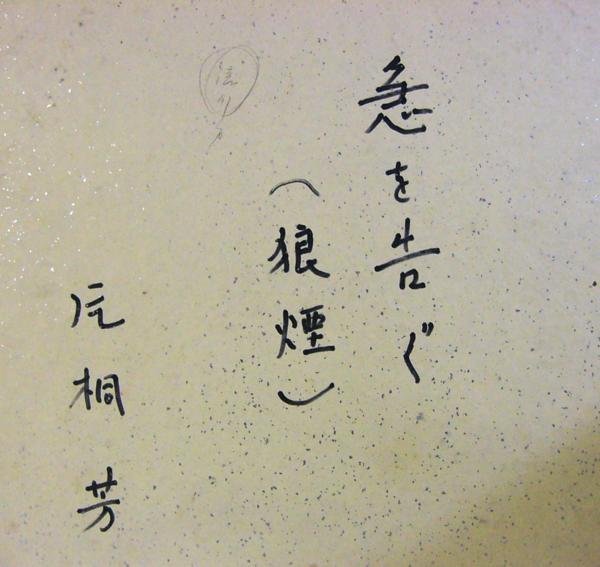 急を告ぐ
(狼煙)
片桐芳